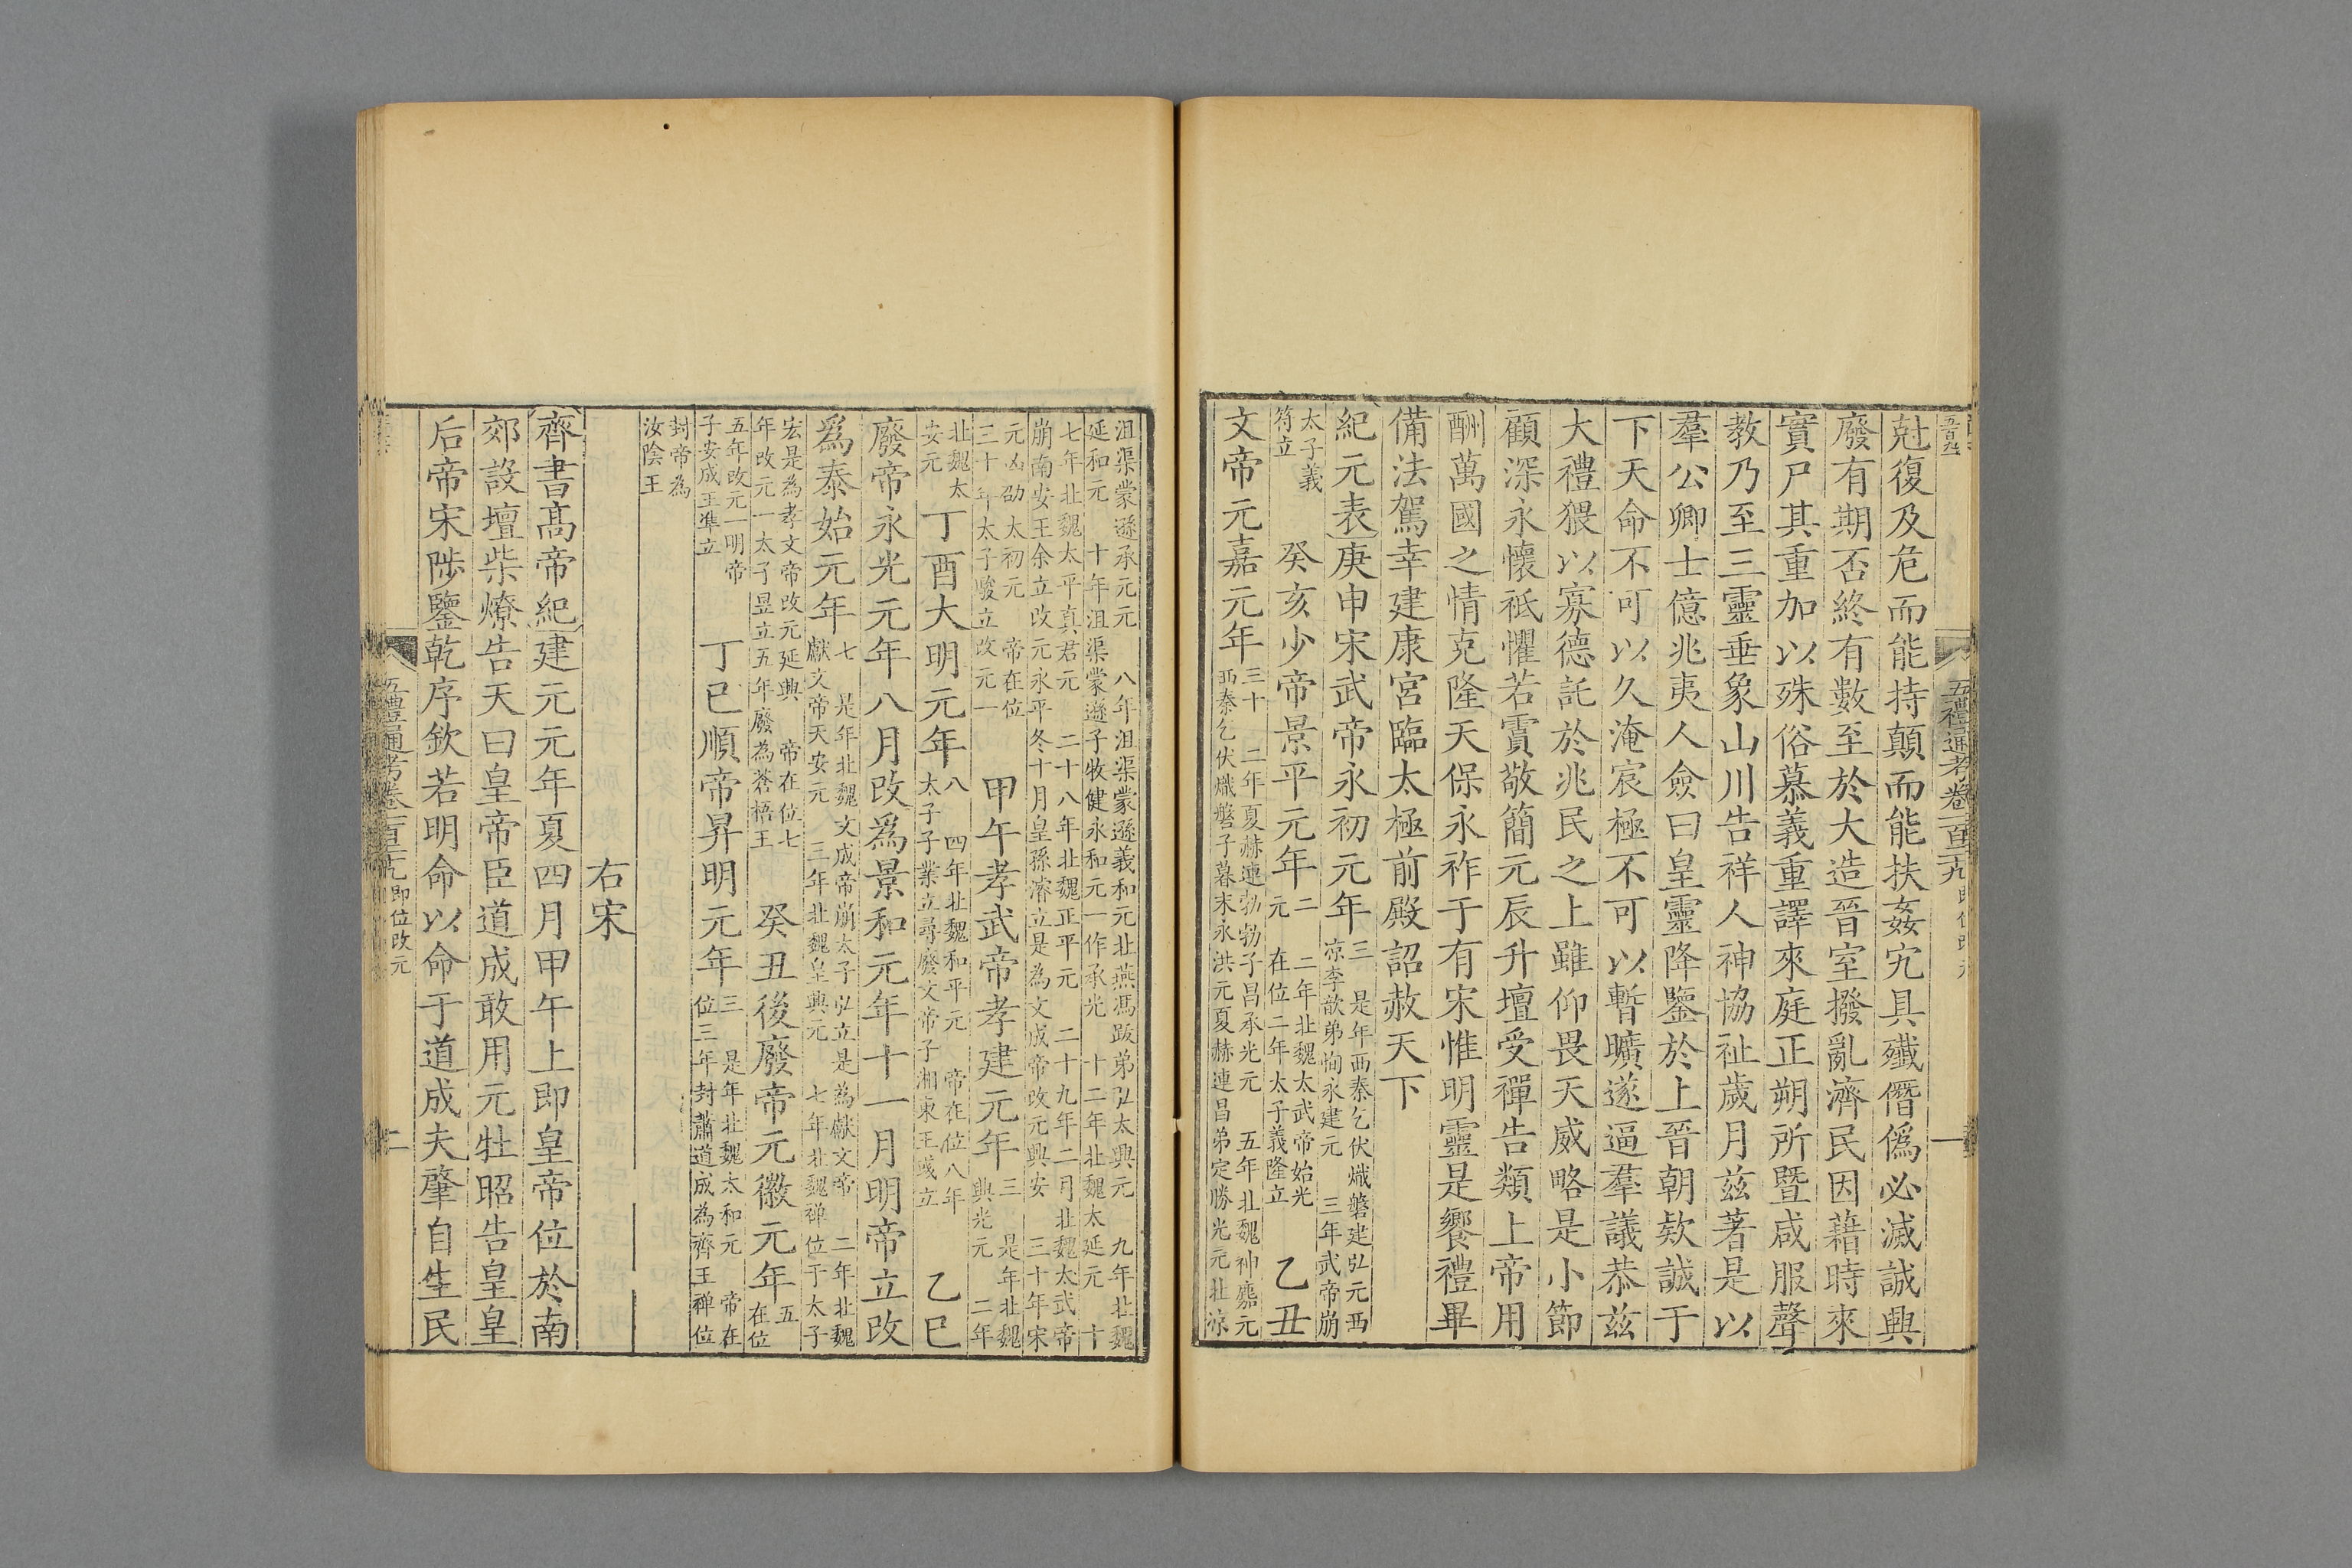 五禮通考卷一百二十九
尅復及危而能持顛而能扶姦宄具殲僭僞必滅誠興
廢有期否終有數至於大造晉室撥亂濟民因藉時來
實尸其重加以殊俗慕義重譯來庭正朔所暨咸服聲
教乃至三靈垂象山川告祥人神協祉歲月兹著是以
羣公卿士億兆夷人僉曰皇靈降鑒於上晉朝欵誠于
下天命不可以久淹宸極不可以暫曠遂逼羣議恭兹
大禮猥以寡德託於兆民之上雖仰畏天威略是小節
顧深永懷祗懼若霣敬簡元辰升壇受禪告類上帝用
酬萬國之情克隆天保永祚于有宋惟明靈是饗禮畢
備法駕幸建康宮臨太極前殿詔赦天下
紀元表庚申宋武帝永初元年三　是年西秦乞伏熾磐建弘元西涼李歆弟恂永建元　三年武帝崩
太子義符立　癸亥少帝景平元年二　二年北魏太武帝始光元　在位二年太子義隆立　乙丑
文帝元嘉元年三十　二年夏赫連勃勃子昌承光元　五年北魏神䴥元西秦乞伏熾磐子暮末永洪元夏赫連昌弟定勝光元北涼
沮渠蒙遜承元元　八年沮渠蒙遜義和元北燕馮跋弟弘太興元　九年北魏延和元　十年沮渠蒙遜子牧健永和元一作承光　十二年北魏太延元　十
七年北魏太平真君元　二十八年北魏正平元　二十九年二月北魏太武帝崩南安王余立改元永平冬十月皇孫濬立是為文成帝改元興安　三十年宋
元凶劭太初元　帝在位三十年太子駿立改元一　甲午孝武帝孝建元年三　是年北魏興光元　二年
北魏太安元　丁酉大明元年八　四年北魏和平元　帝在位八年太子子業立尋廢文帝子湘東王彧立　乙巳
廢帝永光元年八月改爲景和元年十一月明帝立改
爲泰始元年七　是年北魏文成帝崩太子弘立是為獻文帝　二年北魏獻文帝天安元　三年北魏皇興元　七年北魏禅位于太子
宏是為孝文帝改元延興　帝在位七年改元一太子昱立五年廢為蒼梧王　癸丑後廢帝元徽元年五在位
五年改元一明帝子安成王準立　丁巳順帝昇明元年三　是年北魏太和元　帝在位三年封蕭道成為齊王禅位
封帝為汝陰王
右宋
齊書高帝紀建元元年夏四月甲午上即皇帝位於南
郊設壇柴燎告天曰皇帝臣道成敢用元牡昭告皇皇
后帝宋陟鑒乾序欽若明命以命于道成夫肇自生民
五禮通考卷一百二十九　即位改元　二